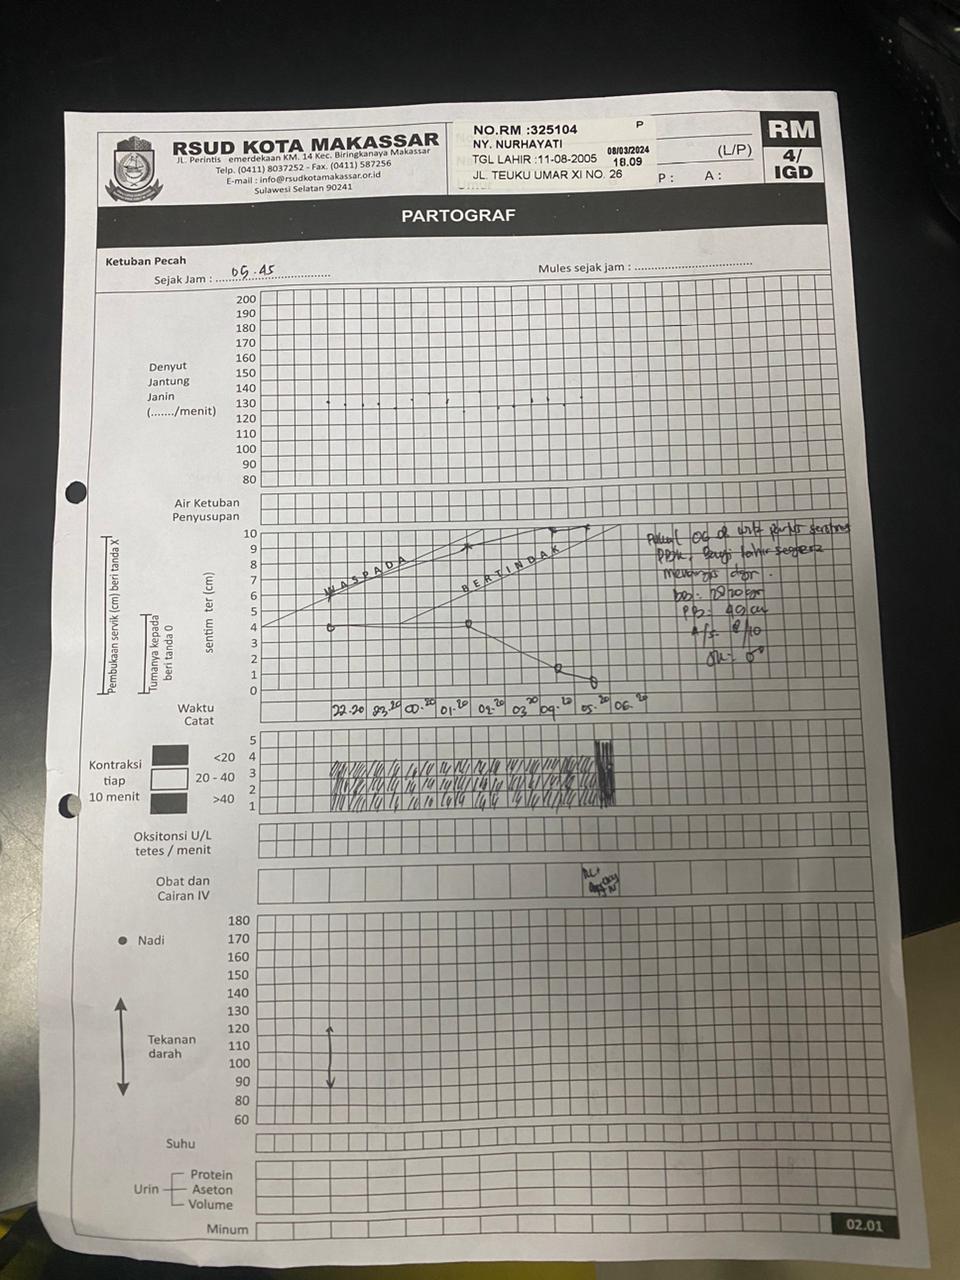 RSUD KOTA MAKASSAR
JL. Perintis emerdekaan KM. 14 Kec. Biringkanaya Makassar
Telp. (0411) 8037252 - Fax. (0411) 587256
E-mail : info@rsudkotamakassar.or.id
Sulawesi Selatan 90241
NO.RM :325104 P
NY. NURHAYATI
TGL LAHIR :11-08-2005 08/03/2024 18.09
JL. TEUKU UMAR XI NO. 26
(L/P)
P : A :
RM
4/
IGD
PARTOGRAF
Ketuban Pecah
Sejak Jam : 05.45
Mules sejak jam :
Denyut
Jantung
Janin
(......./menit)
200
190
180
170
160
150
140
130
120
110
100
90
80
Air Ketuban
Penyusupan
Pembukaan servik (cm) beri tanda X
Tumanya kepada
beri tanda 0
sentim ter (cm)
10
9
8
7
6
5
4
3
2
1
0
WASPADA
BERTINDAK
Pukul 06
bayi lahir segera
PB: 49 cm
Waktu
Catat
22.20 23.20 00.20 01.20 02.20 03.20 04.20 05.20 06.20
Kontraksi
tiap
10 menit
<20
20 - 40
>40
5
4
3
2
1
Oksitonsi U/L
tetes / menit
Obat dan
Cairan IV
Nadi
Tekanan
darah
180
170
160
150
140
130
120
110
100
90
80
60
Suhu
Urin
Protein
Aseton
Volume
Minum
02.01